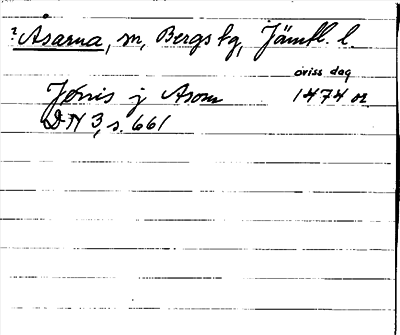 ? Åsarna, sn, Bergs tg, Jämtl. l.
oviss dag
Jønis j Asom 1474 or
DN 3, s. 661